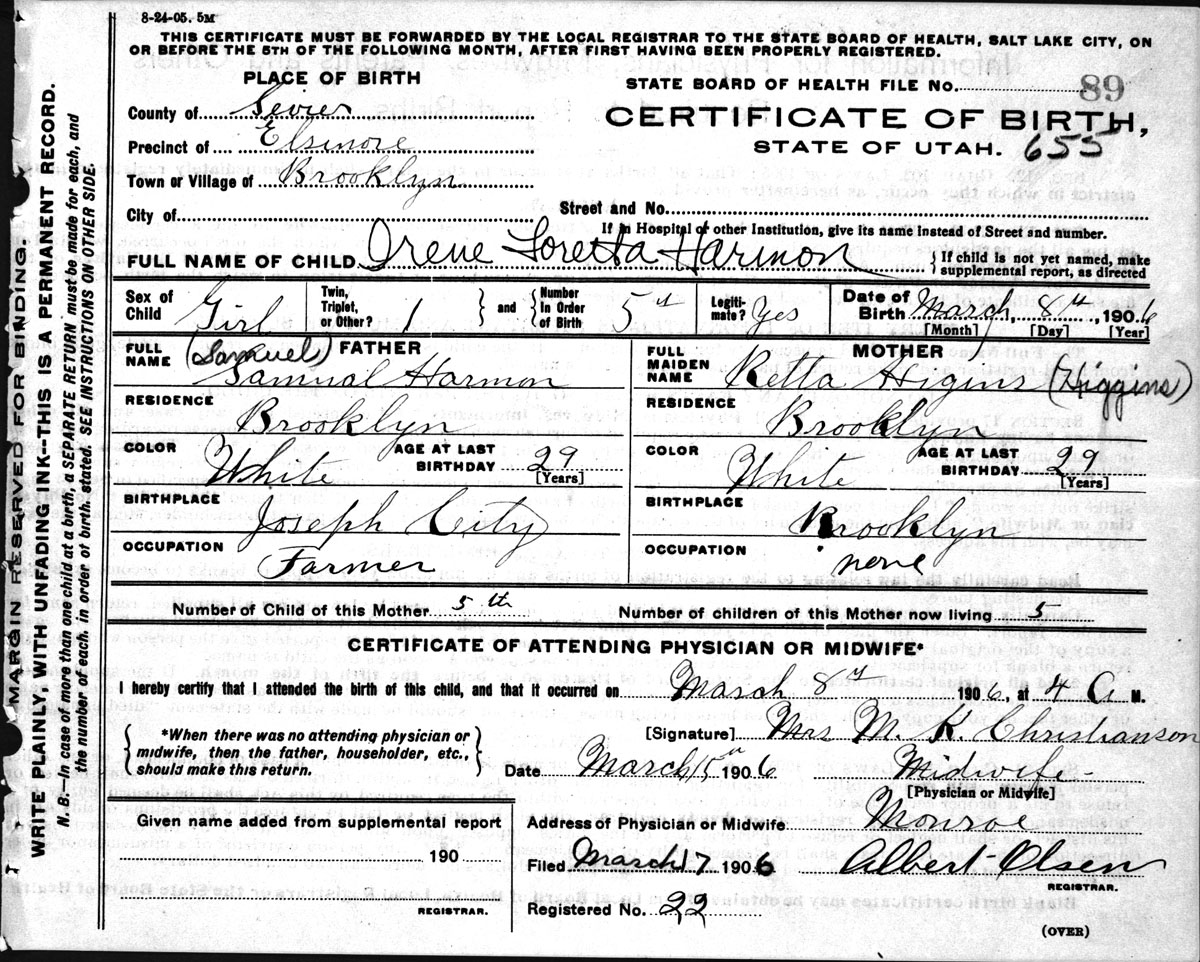 8-24-05. 5M
THIS CERTIFICATE MUST BE FORWARDED BY THE LOCAL REGISTRAR TO THE STATE BOARD OF HEALTH, SALT LAKE CITY, ON
OR BEFORE THE 5TH OF THE FOLLOWING MONTH, AFTER FIRST HAVING BEEN PROPERLY REGISTERED.
PLACE OF BIRTH
County of Sevier
Precinct of Elsinore
Town or Village of Brooklyn
City of
STATE BOARD OF HEALTH FILE No. 89
CERTIFICATE OF BIRTH,
STATE OF UTAH. 655
Street and No.
If in Hospital or other Institution, give its name instead of Street and number.
FULL NAME OF CHILD Irene Loretta Harmon { If child is not yet named, make
supplemental report, as directed
Sex of Child Girl { Twin, Triplet, or Other? 1 } and { Number In Order of Birth 5th Legiti-mate? Yes Date of Birth March, 8th, 1906
[Month] [Day] [Year]
FATHER
FULL NAME (Samuel)
Samual Harmon
RESIDENCE
Brooklyn
COLOR White AGE AT LAST BIRTHDAY 29
[Years]
BIRTHPLACE
Joseph City
OCCUPATION
Farmer
MOTHER
FULL MAIDEN NAME Retta Higins (Higgins)
RESIDENCE
Brooklyn
COLOR White AGE AT LAST BIRTHDAY 29
[Years]
BIRTHPLACE
Brooklyn
OCCUPATION
none
Number of Child of this Mother 5th Number of children of this Mother now living 5
CERTIFICATE OF ATTENDING PHYSICIAN OR MIDWIFE*
I hereby certify that I attended the birth of this child, and that it occurred on March 8th 1906, at 4 A M.
{ *When there was no attending physician or
midwife, then the father, householder, etc.,
should make this return. }
[Signature] Mrs M. K. Christianson
Date March 15th 1906 Midwife
[Physician or Midwife]
Given name added from supplemental report
190
REGISTRAR.
Address of Physician or Midwife Monroe
Filed March 17 1906 Albert Olsen
REGISTRAR.
Registered No. 22
(OVER)
MARGIN RESERVED FOR BINDING.
WRITE PLAINLY, WITH UNFADING INK--THIS IS A PERMANENT RECORD.
N. B.--In case of more than one child at a birth, a SEPARATE RETURN must be made for each, and
the number of each, in order of birth, stated. SEE INSTRUCTIONS ON OTHER SIDE.